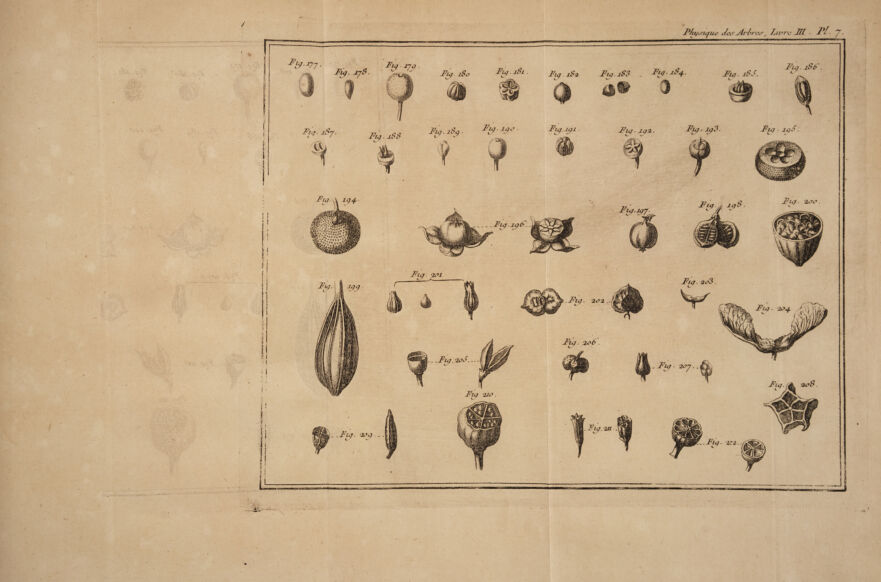 Physique des Arbres, Livre III. Pl. 7.
Fig. 177.
Fig. 178.
Fig. 179.
Fig. 180
Fig. 181.
Fig. 182
Fig. 183
Fig. 184.
Fig. 185.
Fig. 186.
Fig. 187.
Fig. 188
Fig. 189.
Fig. 190.
Fig. 191.
Fig. 192.
Fig. 193.
Fig. 195.
Fig. 194
Fig. 196
Fig. 197.
Fig. 198.
Fig. 200.
Fig. 199
Fig. 201
Fig. 202
Fig. 203.
Fig. 204
Fig. 205
Fig. 206
Fig. 207
Fig. 208.
Fig. 209
Fig. 210.
Fig. 211
Fig. 212